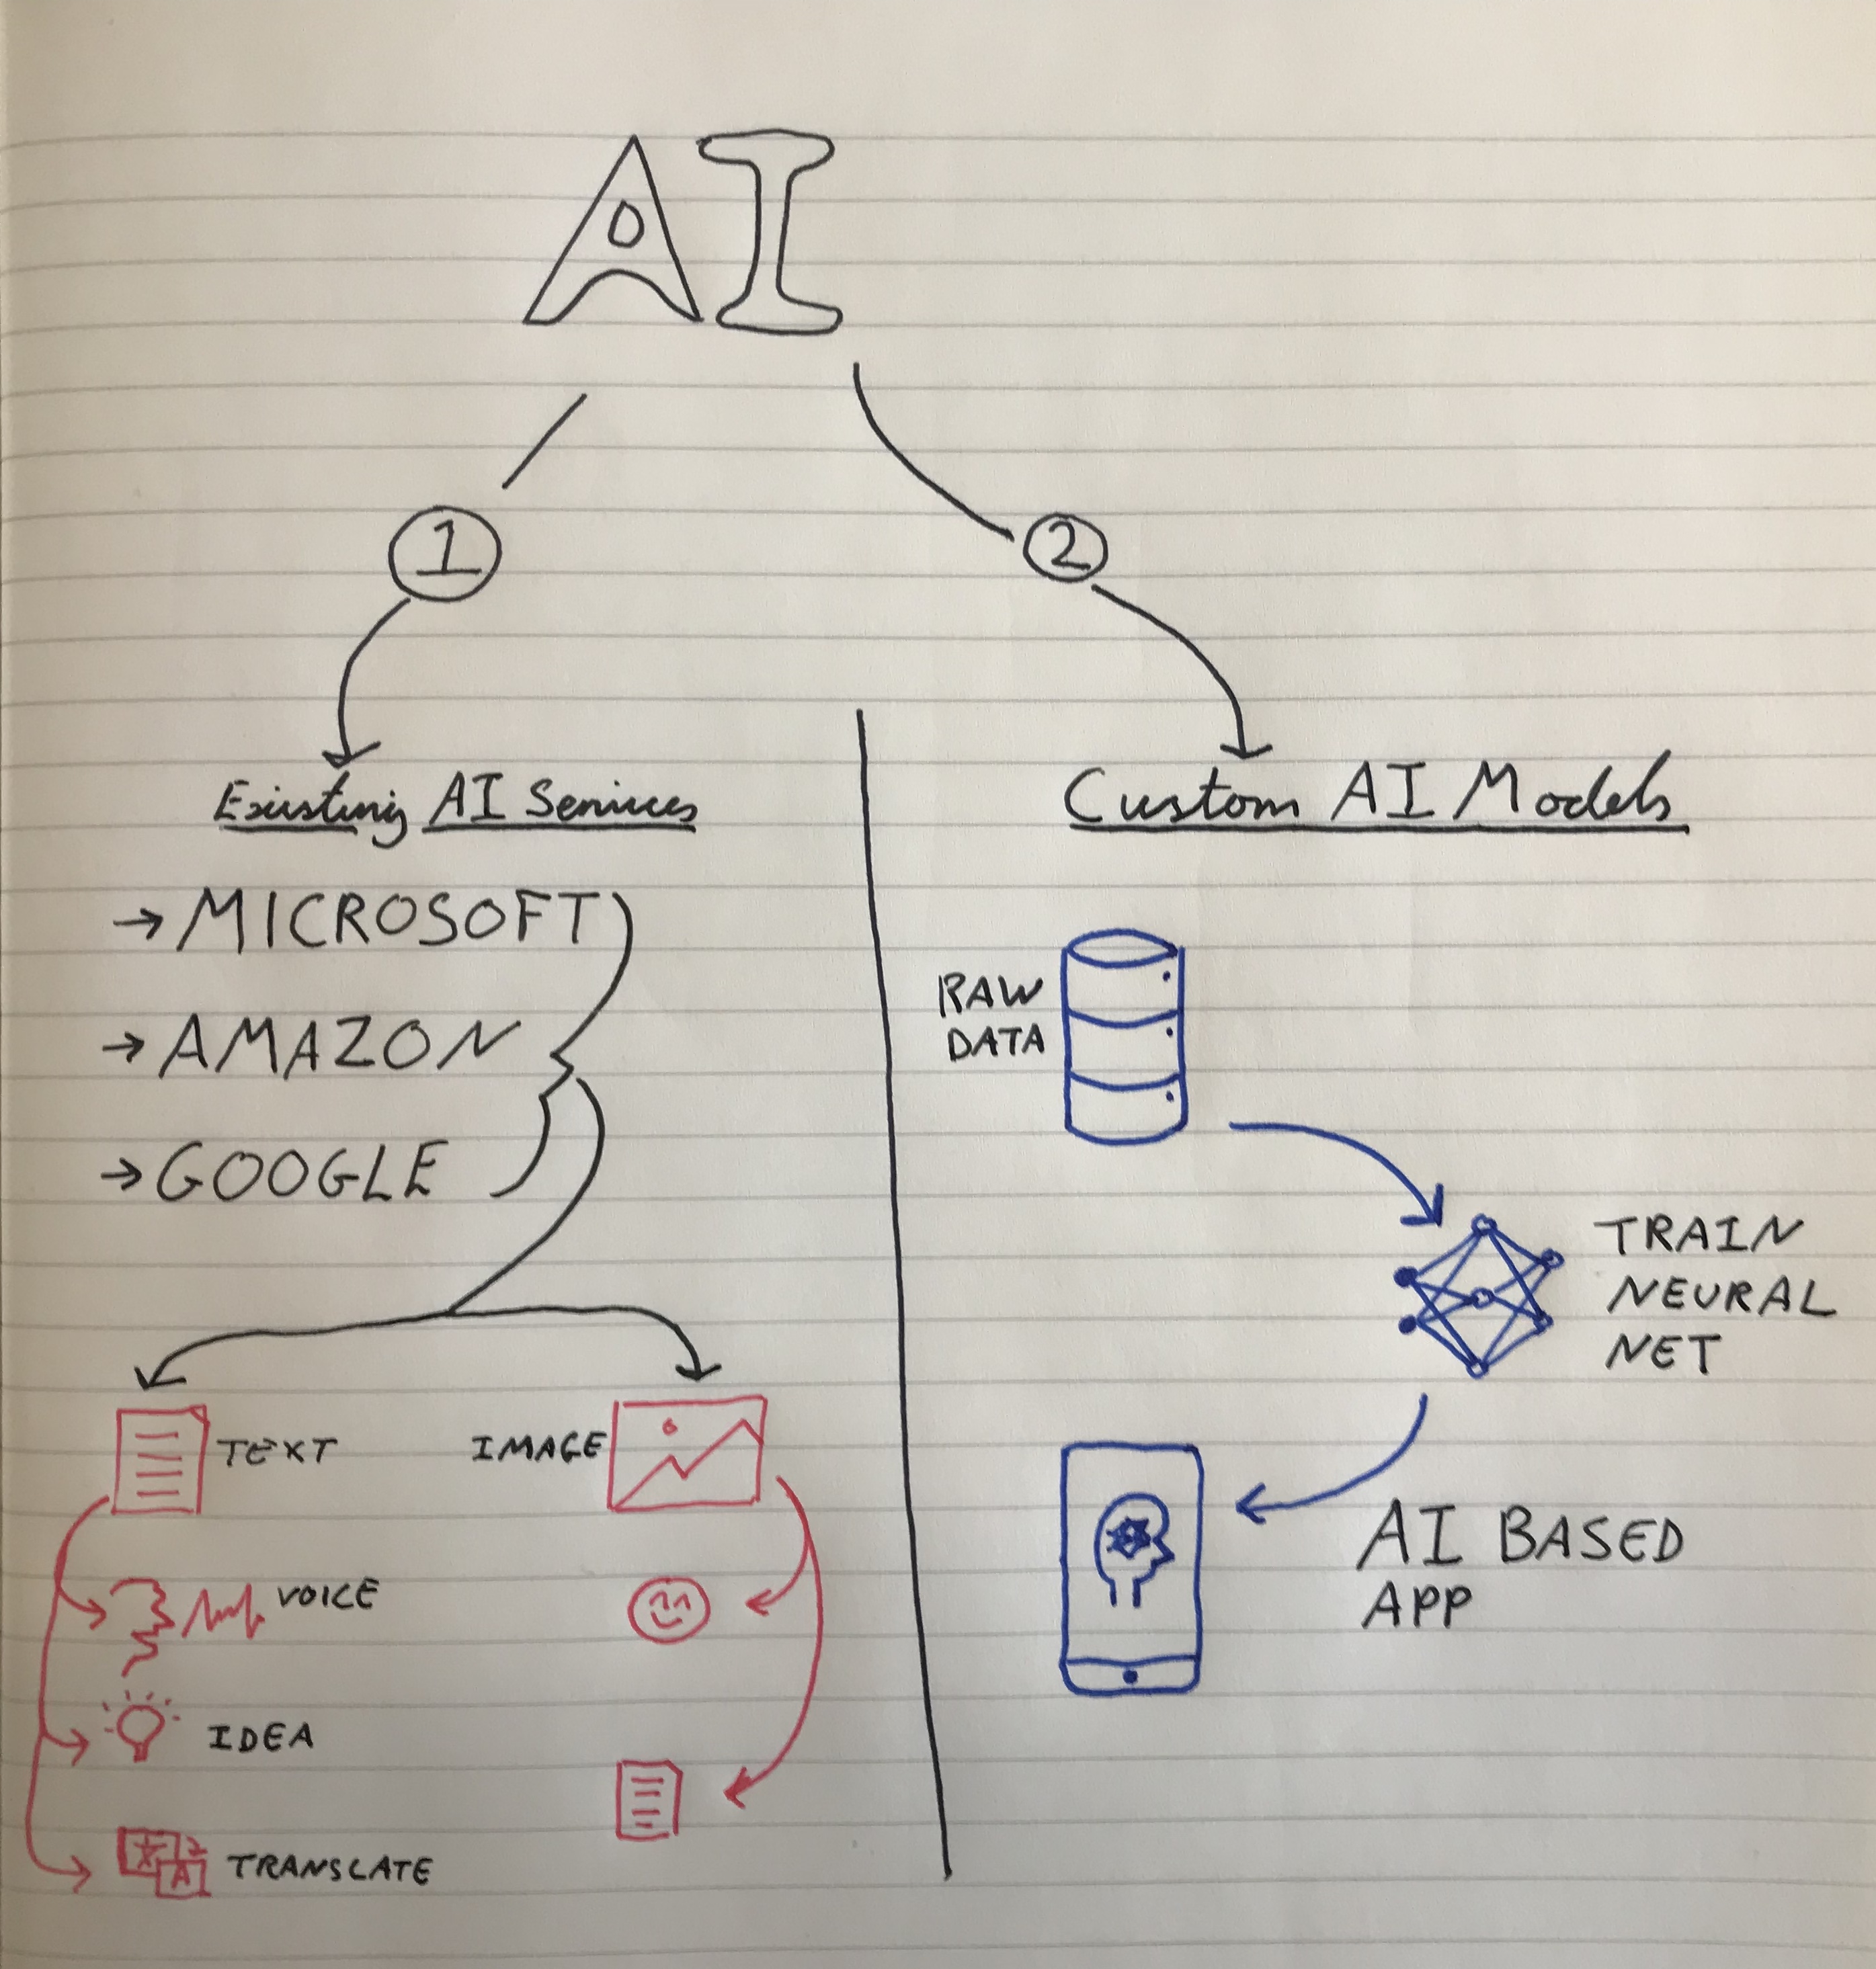 AI
1
2
Existing AI Services
→ MICROSOFT
→ AMAZON
→ GOOGLE
TEXT
IMAGE
VOICE
IDEA
文
A
TRANSLATE
Custom AI Models
RAW
DATA
TRAIN
NEURAL
NET
AI BASED
APP